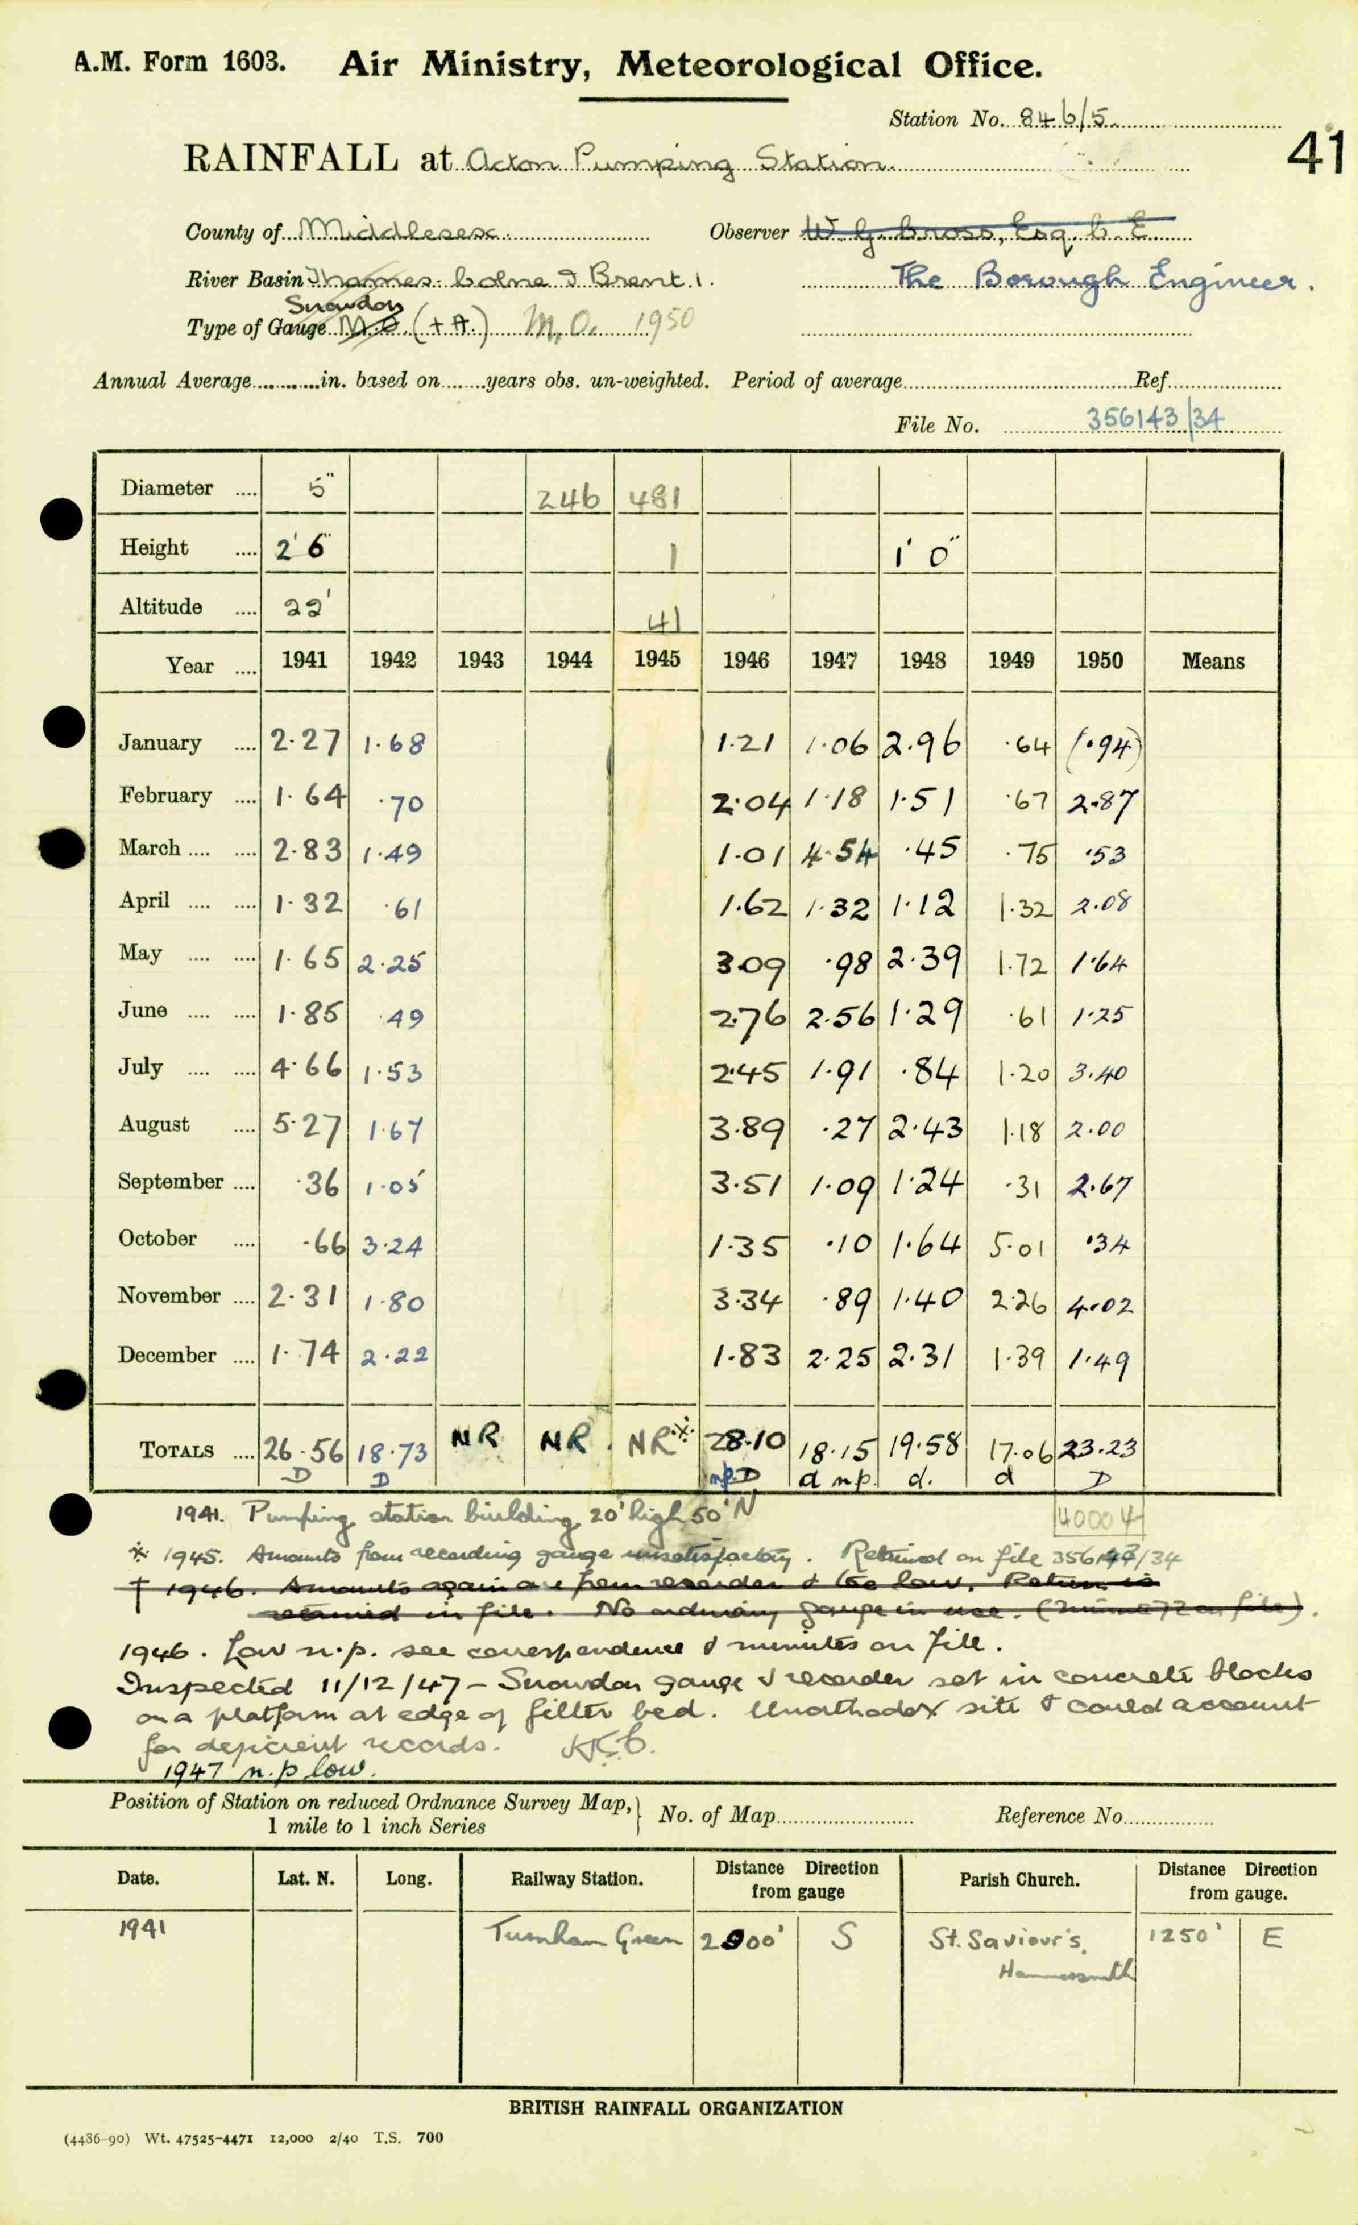 A.M. Form 1603. Air Ministry, Meteorological Office.
Station No. 846/5
41
RAINFALL at Acton Pumping Station.
County of Middlesex. Observer W. G. Cross, Esq. C.E.
River Basin Thames: Colne & Brent 1. The Borough Engineer.
Snowdon
Type of Gauge M.O. (+A.) M.O. 1950
Annual Average in. based on years obs. un-weighted. Period of average Ref.
File No. 356143/34
Diameter .... 5" 246 481
Height .... 2' 6" 1 1' 0"
Altitude .... 22' 41
Year .... 1941 1942 1943 1944 1945 1946 1947 1948 1949 1950 Means
January .... 2.27 1.68 1.21 1.06 2.96 .64 (.94)
February .... 1.64 .70 2.04 1.18 1.51 .67 2.87
March .... .... 2.83 1.49 1.01 4.54 .45 .75 .53
April .... .... 1.32 .61 1.62 1.32 1.12 1.32 2.08
May .... .... 1.65 2.25 3.09 .98 2.39 1.72 1.64
June .... .... 1.85 .49 2.76 2.56 1.29 .61 1.25
July .... .... 4.66 1.53 2.45 1.91 .84 1.20 3.40
August .... 5.27 1.67 3.89 .27 2.43 1.18 2.00
September .... .36 1.05 3.51 1.09 1.24 .31 2.67
October .... .66 3.24 1.35 .10 1.64 5.01 .34
November .... 2.31 1.80 3.34 .89 1.40 2.26 4.02
December .... 1.74 2.22 1.83 2.25 2.31 1.39 1.49
TOTALS .... 26.56 18.73 NR NR. NR※ 28.10 18.15 19.58 17.06 23.23
D D n.p. D d n.p. d. d D
1941. Pumping station building 20' high 50' N
40004
※ 1945. Amounts from recording gauge unsatisfactory. Retained on file 356143/34
† 1946. Amounts again are from recorder & too low. Return is
retained in file. No ordinary gauge in use. (Minute 72 on file).
1946. Low n.p. see correspondence & minutes on file.
Inspected 11/12/47 - Snowdon gauge & recorder set in concrete blocks
on a platform at edge of filter bed. Unorthodox site & could account
for deficient records.
1947 n.p low.
Position of Station on reduced Ordnance Survey Map, } No. of Map Reference No.
1 mile to 1 inch Series
Date. Lat. N. Long. Railway Station. Distance Direction from gauge Parish Church. Distance Direction from gauge.
1941 Turnham Green 2000' S St. Saviour's, 1250' E
Hammersmith
BRITISH RAINFALL ORGANIZATION
(4486-90) Wt. 47525-4471 12,000 2/40 T.S. 700